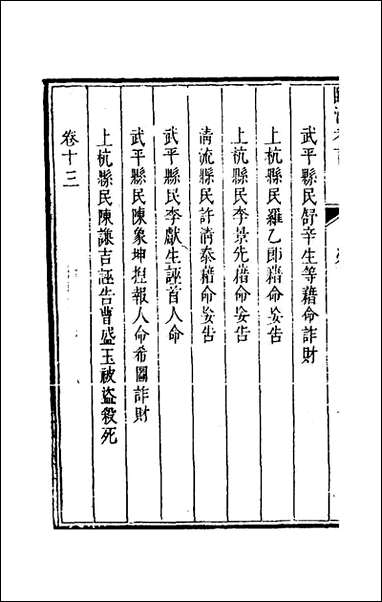 武平縣民舒辛生等藉命詐財
上杭縣民羅乙郎藉命妄告
上杭縣民李景先藉命妄告
清流縣民許清泰藉命妄告
武平縣民李獻生誣首人命
武平縣民陳象坤揑報人命希圖詐財
上杭縣民陳謙吉誣告曹盛玉被盜殺死
卷十三